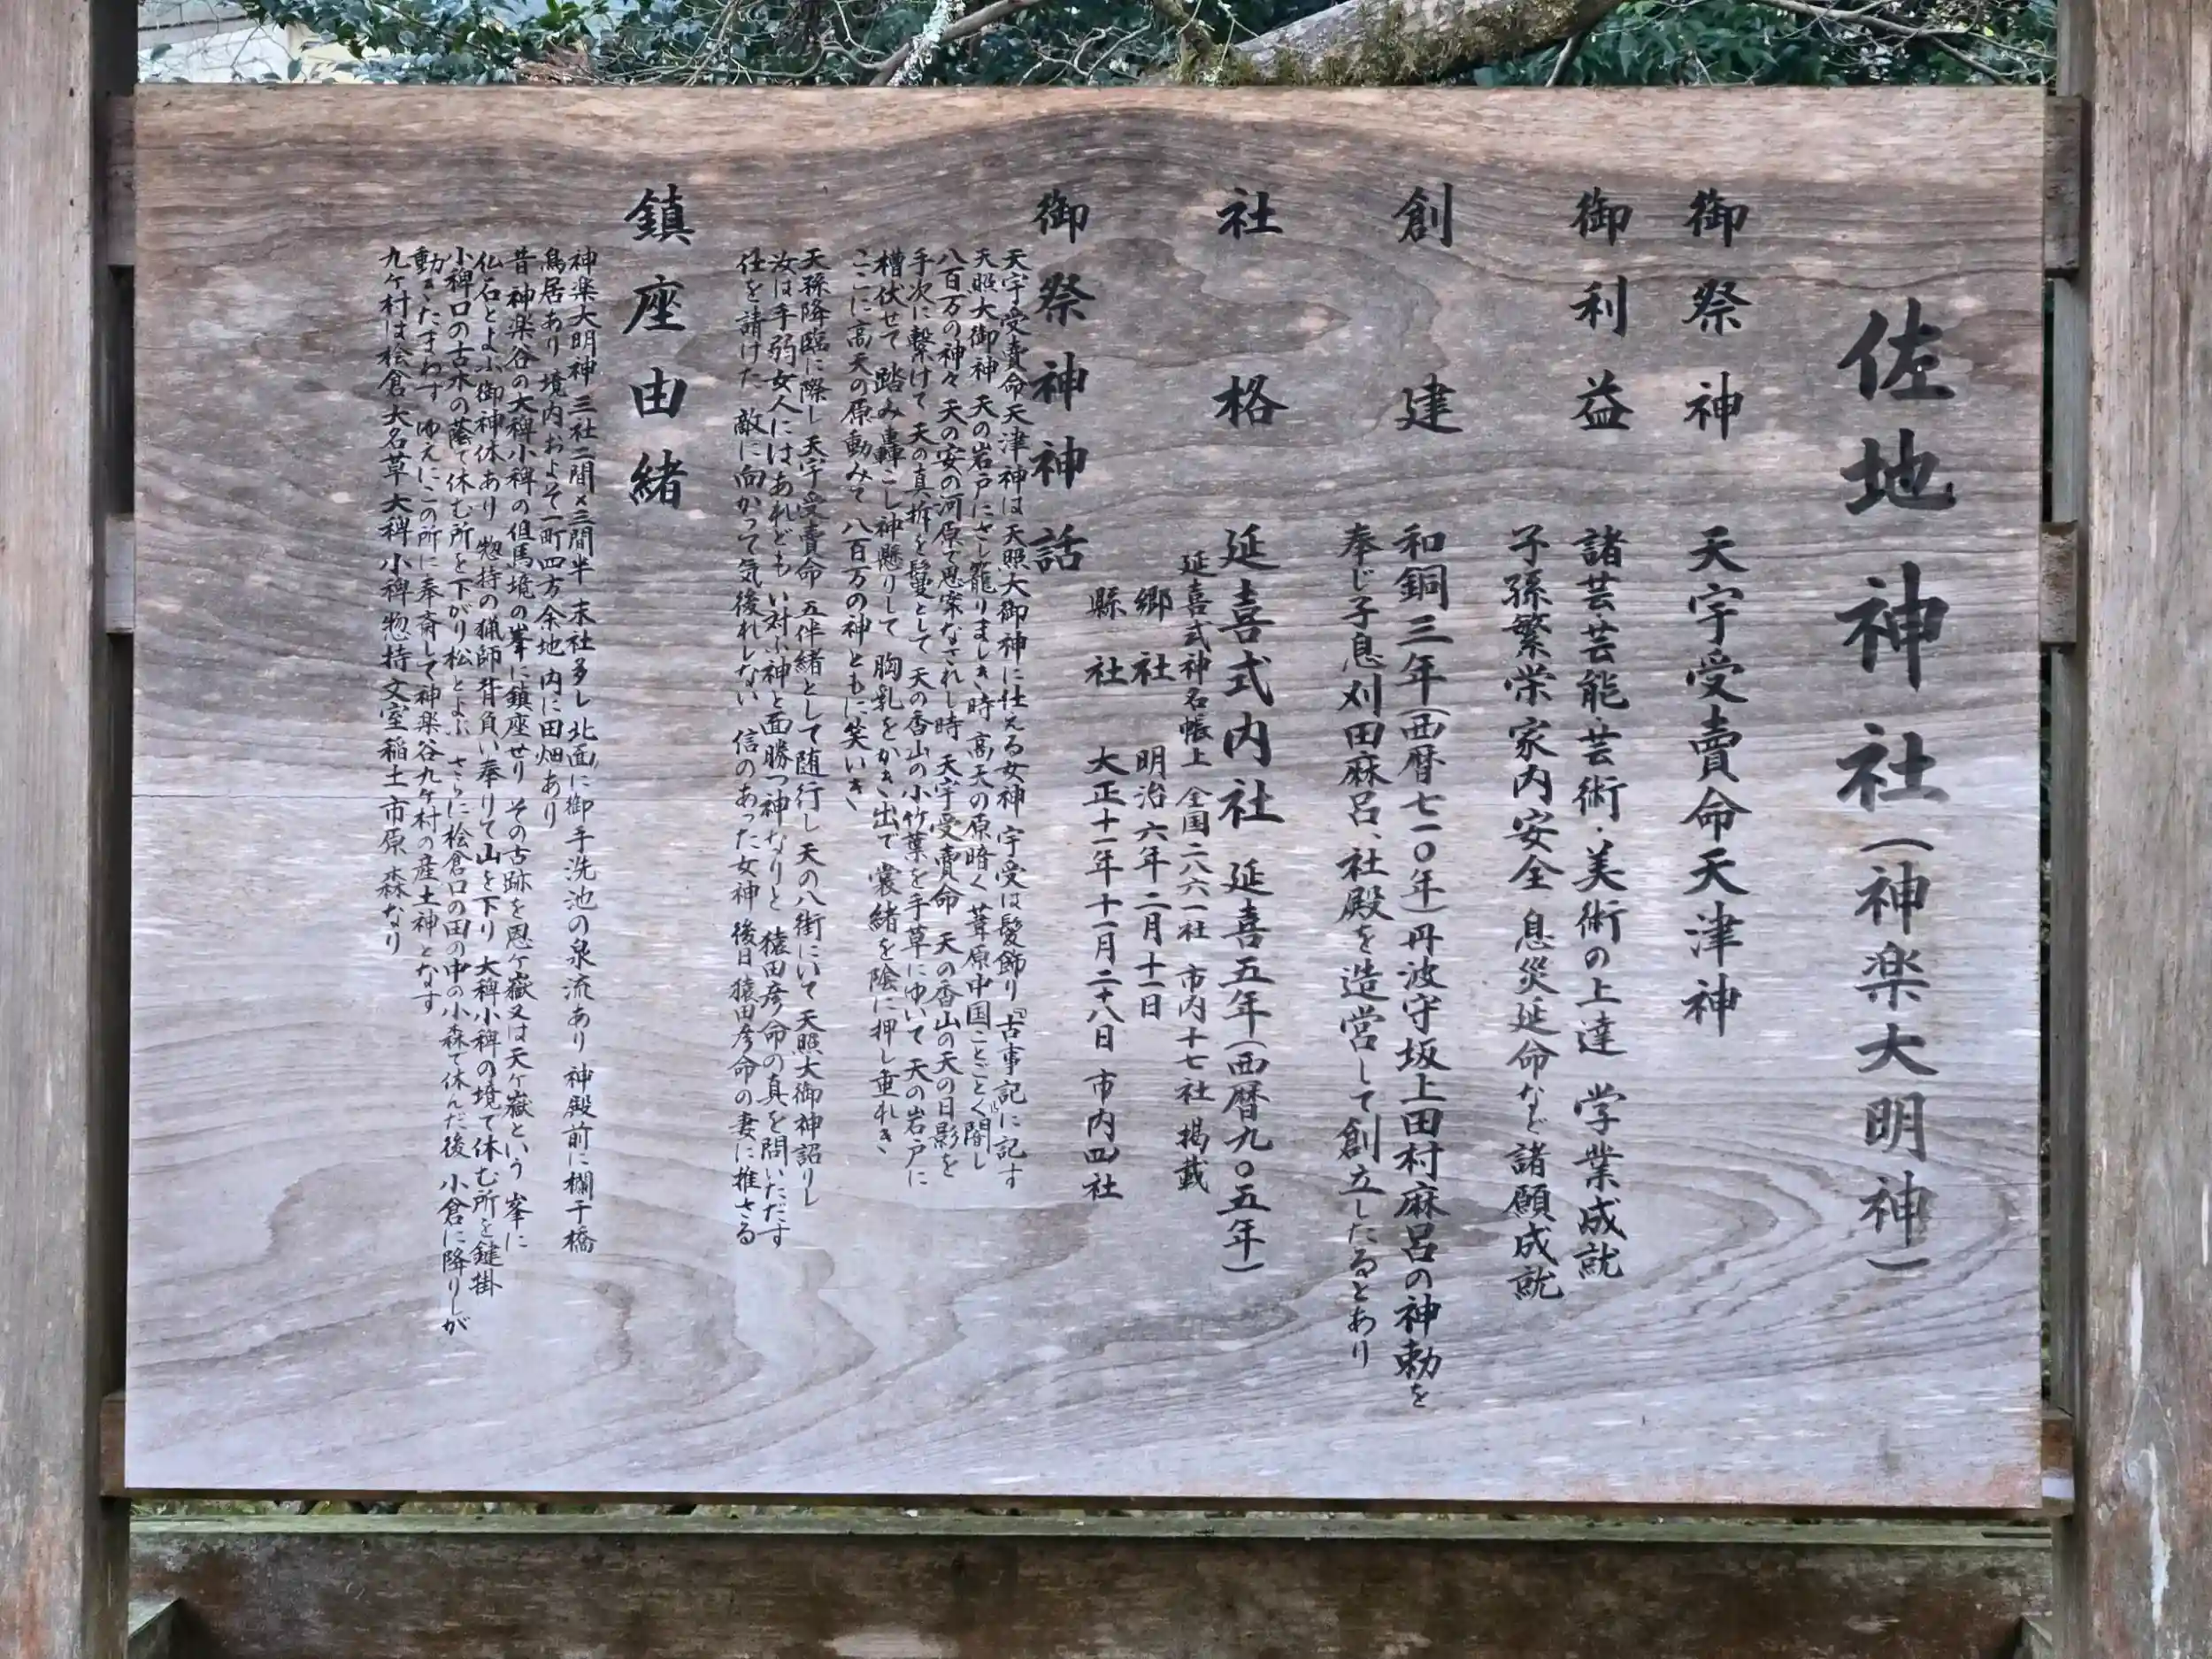 佐地神社(神楽大明神)
御祭神 天宇受賣命天津神
御利益 諸芸芸能・芸術・美術の上達 学業成就
子孫繁栄家内安全 息災延命など諸願成就
創建 和銅三年(西暦七一〇年)丹波守坂上田村麻呂の神勅を
奉じ子息刈田麻呂、社殿を造営して創立したるとあり
社格 延喜式内社 延喜五年(西暦九〇五年)
延喜式神名帳上 全国二八六一社 市内十七社 掲載
郷社 明治六年二月十一日
縣社 大正十一年十一月二十八日 市内四社
御祭神神話
天宇受賣命天津神は天照大御神に仕える女神 宇受は髪飾り『古事記』に記す
天照大御神 天の岩戸にさし籠りましき時高天の原暗く 葦原中国ことごとく闇し
八百万の神々 天の安の河原で思案なされし時 天宇受賣命 天の香山の天の日影を
手次に繋けて 天の真拆を鬘として 天の香山の小竹葉を手草にゆいて 天の岩戸に
槽伏せて 踏み轟こし神懸りして 胸乳をかき出で 裳緒を陰に押し垂れき
ここに高天の原動みて 八百万の神ともに笑いき
天孫降臨に際し 天宇受賣命 五伴緒として随行し 天の八街にいて 天照大御神詔りし
汝は手弱女人にはあれどもい対ふ神と面勝つ神なりと 猿田彦命の真を問いただす
任を請けた 敵に向かって気後れしない 信のあった女神 後日猿田彦命の妻に推さる
鎮座由緒
神楽大明神 三社二間〆三間半 末社多し 北面に御手洗池の泉流あり 神殿前に欄干橋
鳥居あり 境内およそ一町四方余地 内に田畑あり
昔神楽谷の大稗小稗の但馬境の峯に鎮座せり その古跡を思ヶ嶽又は天ヶ嶽という 峯に
仏石とよぶ御神体あり 惣持の猟師背負い奉りて山を下り 大稗小稗の境で休む所を鍵掛
小稗口の古木の蔭で休む所を下がり松とよぶ さらに桧倉口の田の中の小森で休んだ後 小倉に降りしが
動きたまわず ゆえにこの所に奉斎して神楽谷九ヶ村の産土神となす
九ヶ村は桧倉大名草大稗小稗惣持文室稲土市原森なり